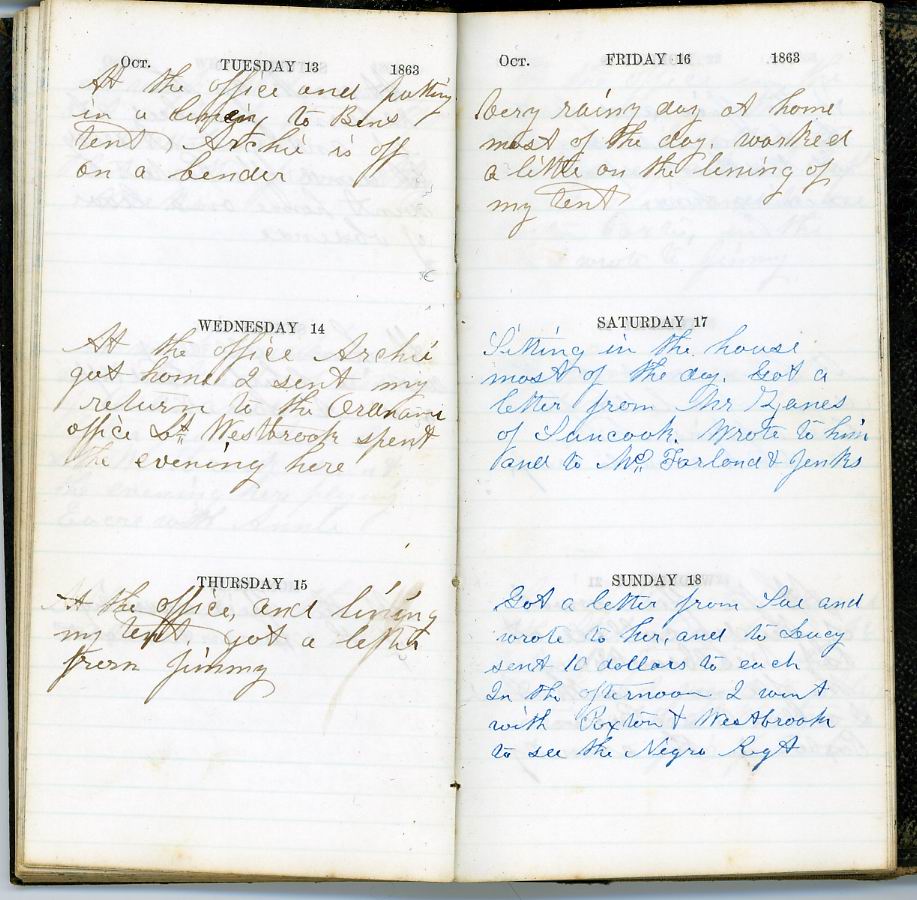 Oct. TUESDAY 13 1863
At the office and putting
in a lining to Bens
tent Archie is off
on a bender
WEDNESDAY 14
At the office Archie
got home I sent my
return to the Ordnance
office Lt Westbrook spent
the evening here
THURSDAY 15
At the office, and lining
my tent. got a letter
from Jimmy
Oct. FRIDAY 16 1863
Very rainy day at home
most of the day. worked
a little on the lining of
my tent
SATURDAY 17
Sitting in the house
most of the day. Got a
letter from Mr
of Suncook. Wrote to him
and to Mc Farland & Jenks
SUNDAY 18
Got a letter from Sue and
wrote to her, and to Lucy
sent 10 dollars to each
In the afternoon I went
with & Westbrook
to see the Negro Regt